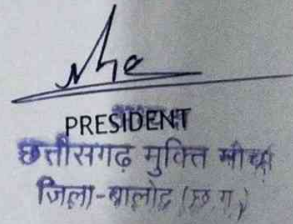 PRESIDENT
छत्तीसगढ़ मुक्ति मोर्चा
जिला-बालोद (छ ग)